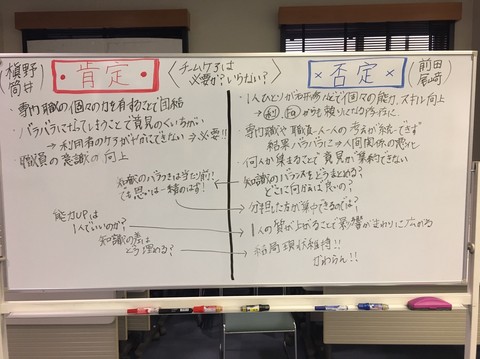 槇野
筒井
・肯定・
〈チームケアは
必要か?いらない?〉
×否定×
前田
尾崎
・専門職の個々の力を有することで団結
・バラバラになってしまうことで意見のくいちがい
→利用者のケアがやることできない→必要!!
・職員の意識の向上
知識のバラつきは当たり前!!
でも思いは一緒のはず!
能力UPは
1人でいいのか?
知識の差は
どう埋める?
・1人ひとりが
個々の能力、スキル向上
・専門職や職員一人一人の考えが統一できず
結果バラバラに→人間関係の悪化
・何人か集まることで意見が集約できない
・知識のバランスをどうまとめる?
どこに向かえば良いの?
・分担した方が集中できるのでは?
・1人の質が上がることで影響がまわりに広がる
・結局現状維持!!
かわらん!!